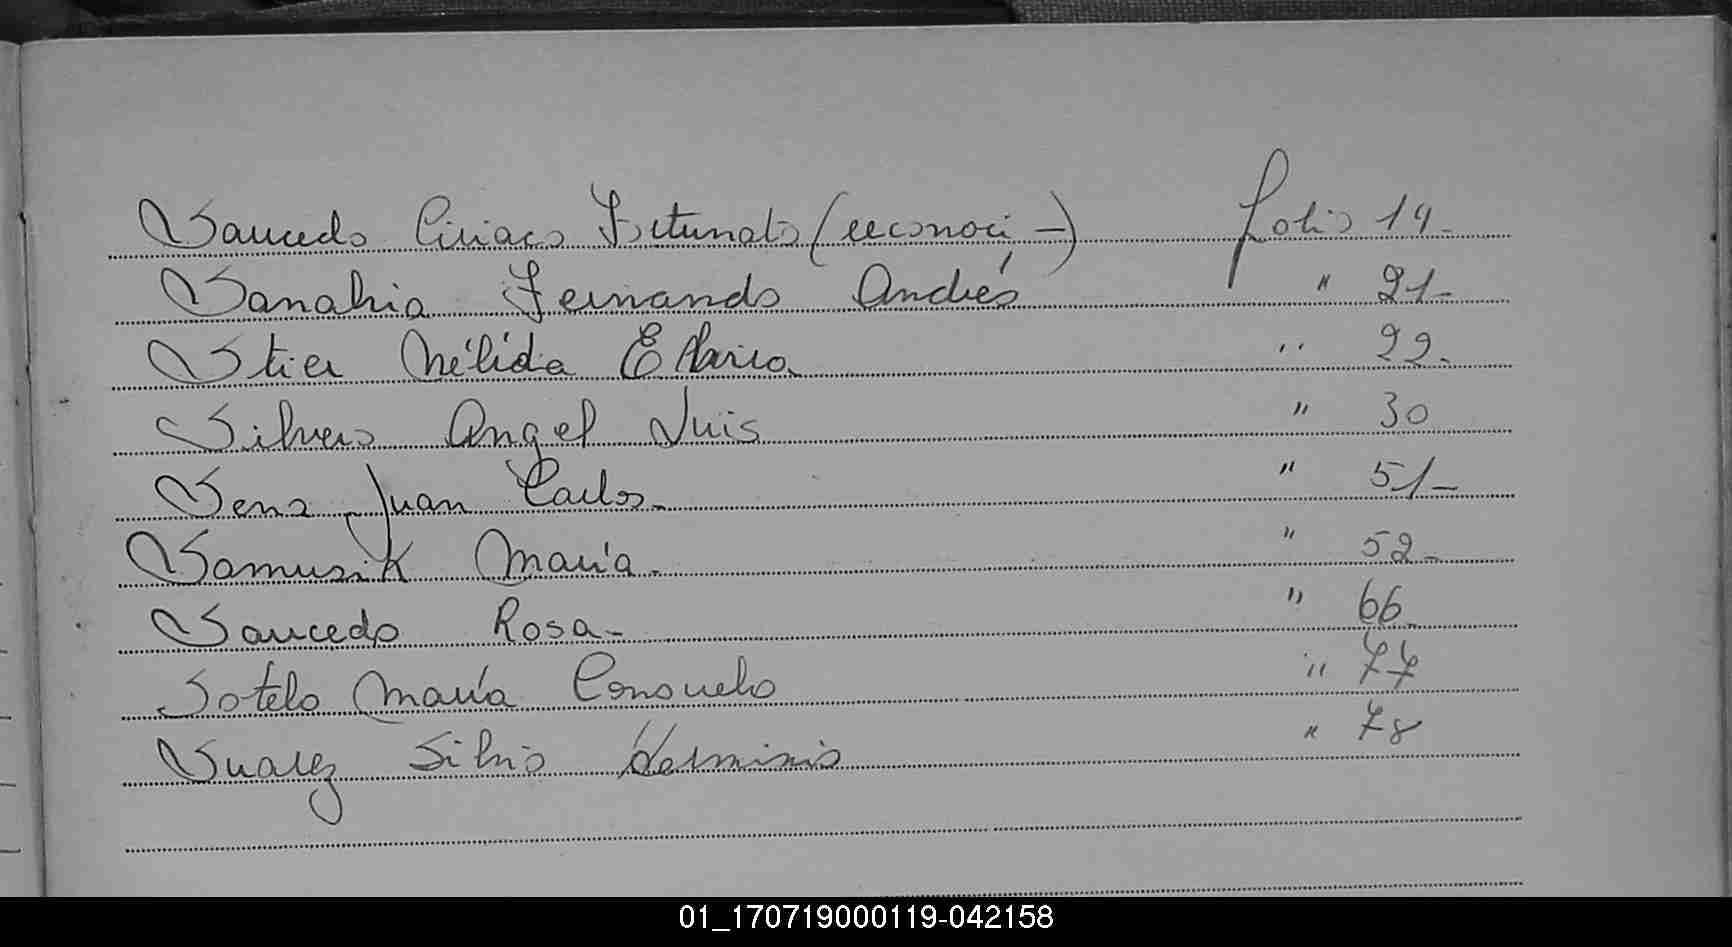 Saucedo Ciriaco Fortunato (reconoci-) folio 19-
Sanabria Fernando Andrés " 21-
Stier Nélida E Maria " 22-
Silvero Angel Luis " 30
Senz Juan Carlos- " 51-
Samusik María- " 52-
Saucedo Rosa- " 66-
Sotelo María Consuelo " 77
Suarez Silvio Herminio " 78
01_170719000119-042158